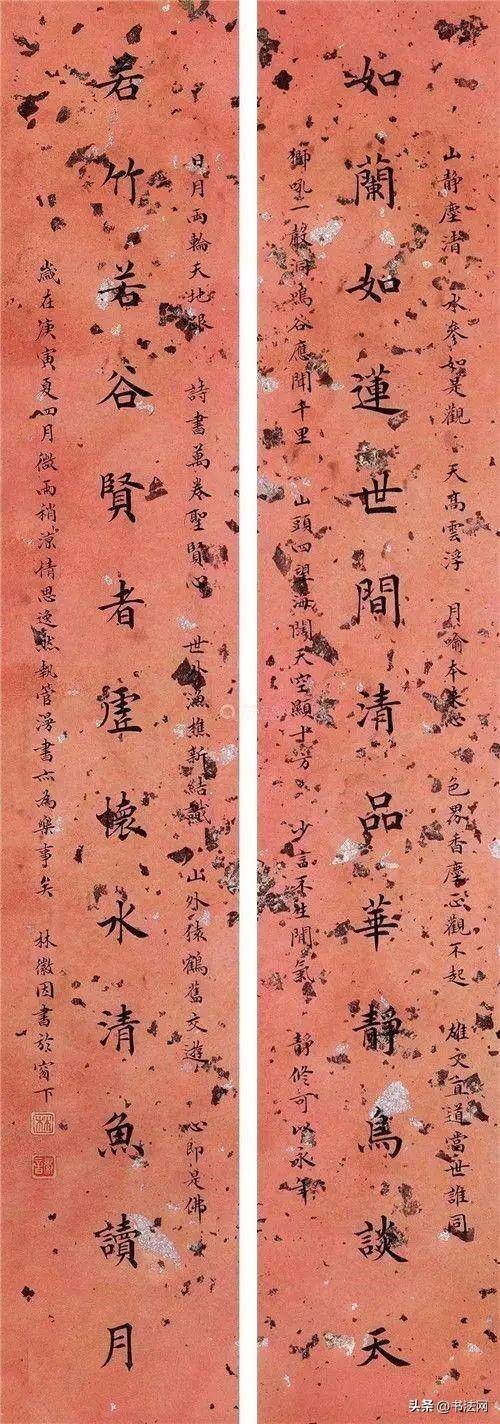 山静塵清 水參如是觀 天高雲浮 月喻本来心 色界香塵心觀不起 雄文直道當世誰同
如蘭如蓮世間清品華靜鳥談天
獅吼一聲洞鳴谷應聞千里 山頭四望海闊天空顯十方 少言不生閒氣 靜修可以永年
日月兩輪天地眼 詩書萬卷聖賢心 世外漁樵新結識 山外猿鶴舊交遊 心即是佛
若竹若谷賢者虛懷水清魚讀月
歲在庚寅夏四月微雨稍涼情思逸然執管漫書亦為樂事矣 林徽因書於窗下
头条 @书法网